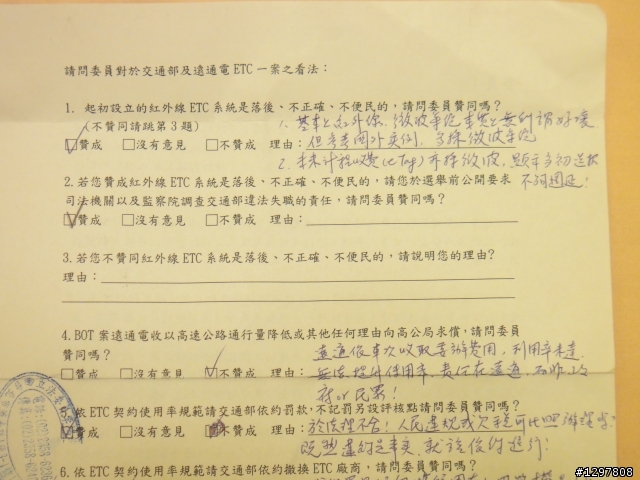 請問委員對於交通部及遠通電ETC一案之看法：
1. 起初設立的紅外線ETC系統是落後、不正確、不便民的，請問委員贊同嗎？
(不贊同請跳第3題)
1. 基本上紅外線、微波系統事實上無所謂好壞
☑贊成 □沒有意見 □不贊成 理由：但參考國外實例，多採微波系統
2. 未來計程收費(eTag)亦採微波，顯示當初選擇
不夠週延！
2.若您贊成紅外線ETC系統是落後、不正確、不便民的，請您於選舉前公開要求
司法機關以及監察院調查交通部違法失職的責任，請問委員贊同嗎？
☑贊成 □沒有意見 □不贊成 理由：
3.若您不贊同紅外線ETC系統是落後、不正確、不便民的，請說明您的理由？
理由：
4.BOT案遠通電收以高速公路通行量降低或其他任何理由向高公局求償，請問委員
贊同嗎？
遠通依車次收取委辦費用，利用率未達
□贊成 □沒有意見 ☑不贊成 無法提升使用率，責任在遠通，而非
政府或民眾！
5.依ETC契約使用率規範請交通部依約罰款，不記罰另設評核點請問委員贊同嗎？
☑贊成 □沒有意見 不贊成 於法理不合！人民違規或欠稅可比照辦理嗎？
既然違約是事實，就該依約進行！
6.依ETC契約使用率規範請交通部依約撤換ETC廠商，請問委員贊同嗎？
#1297808